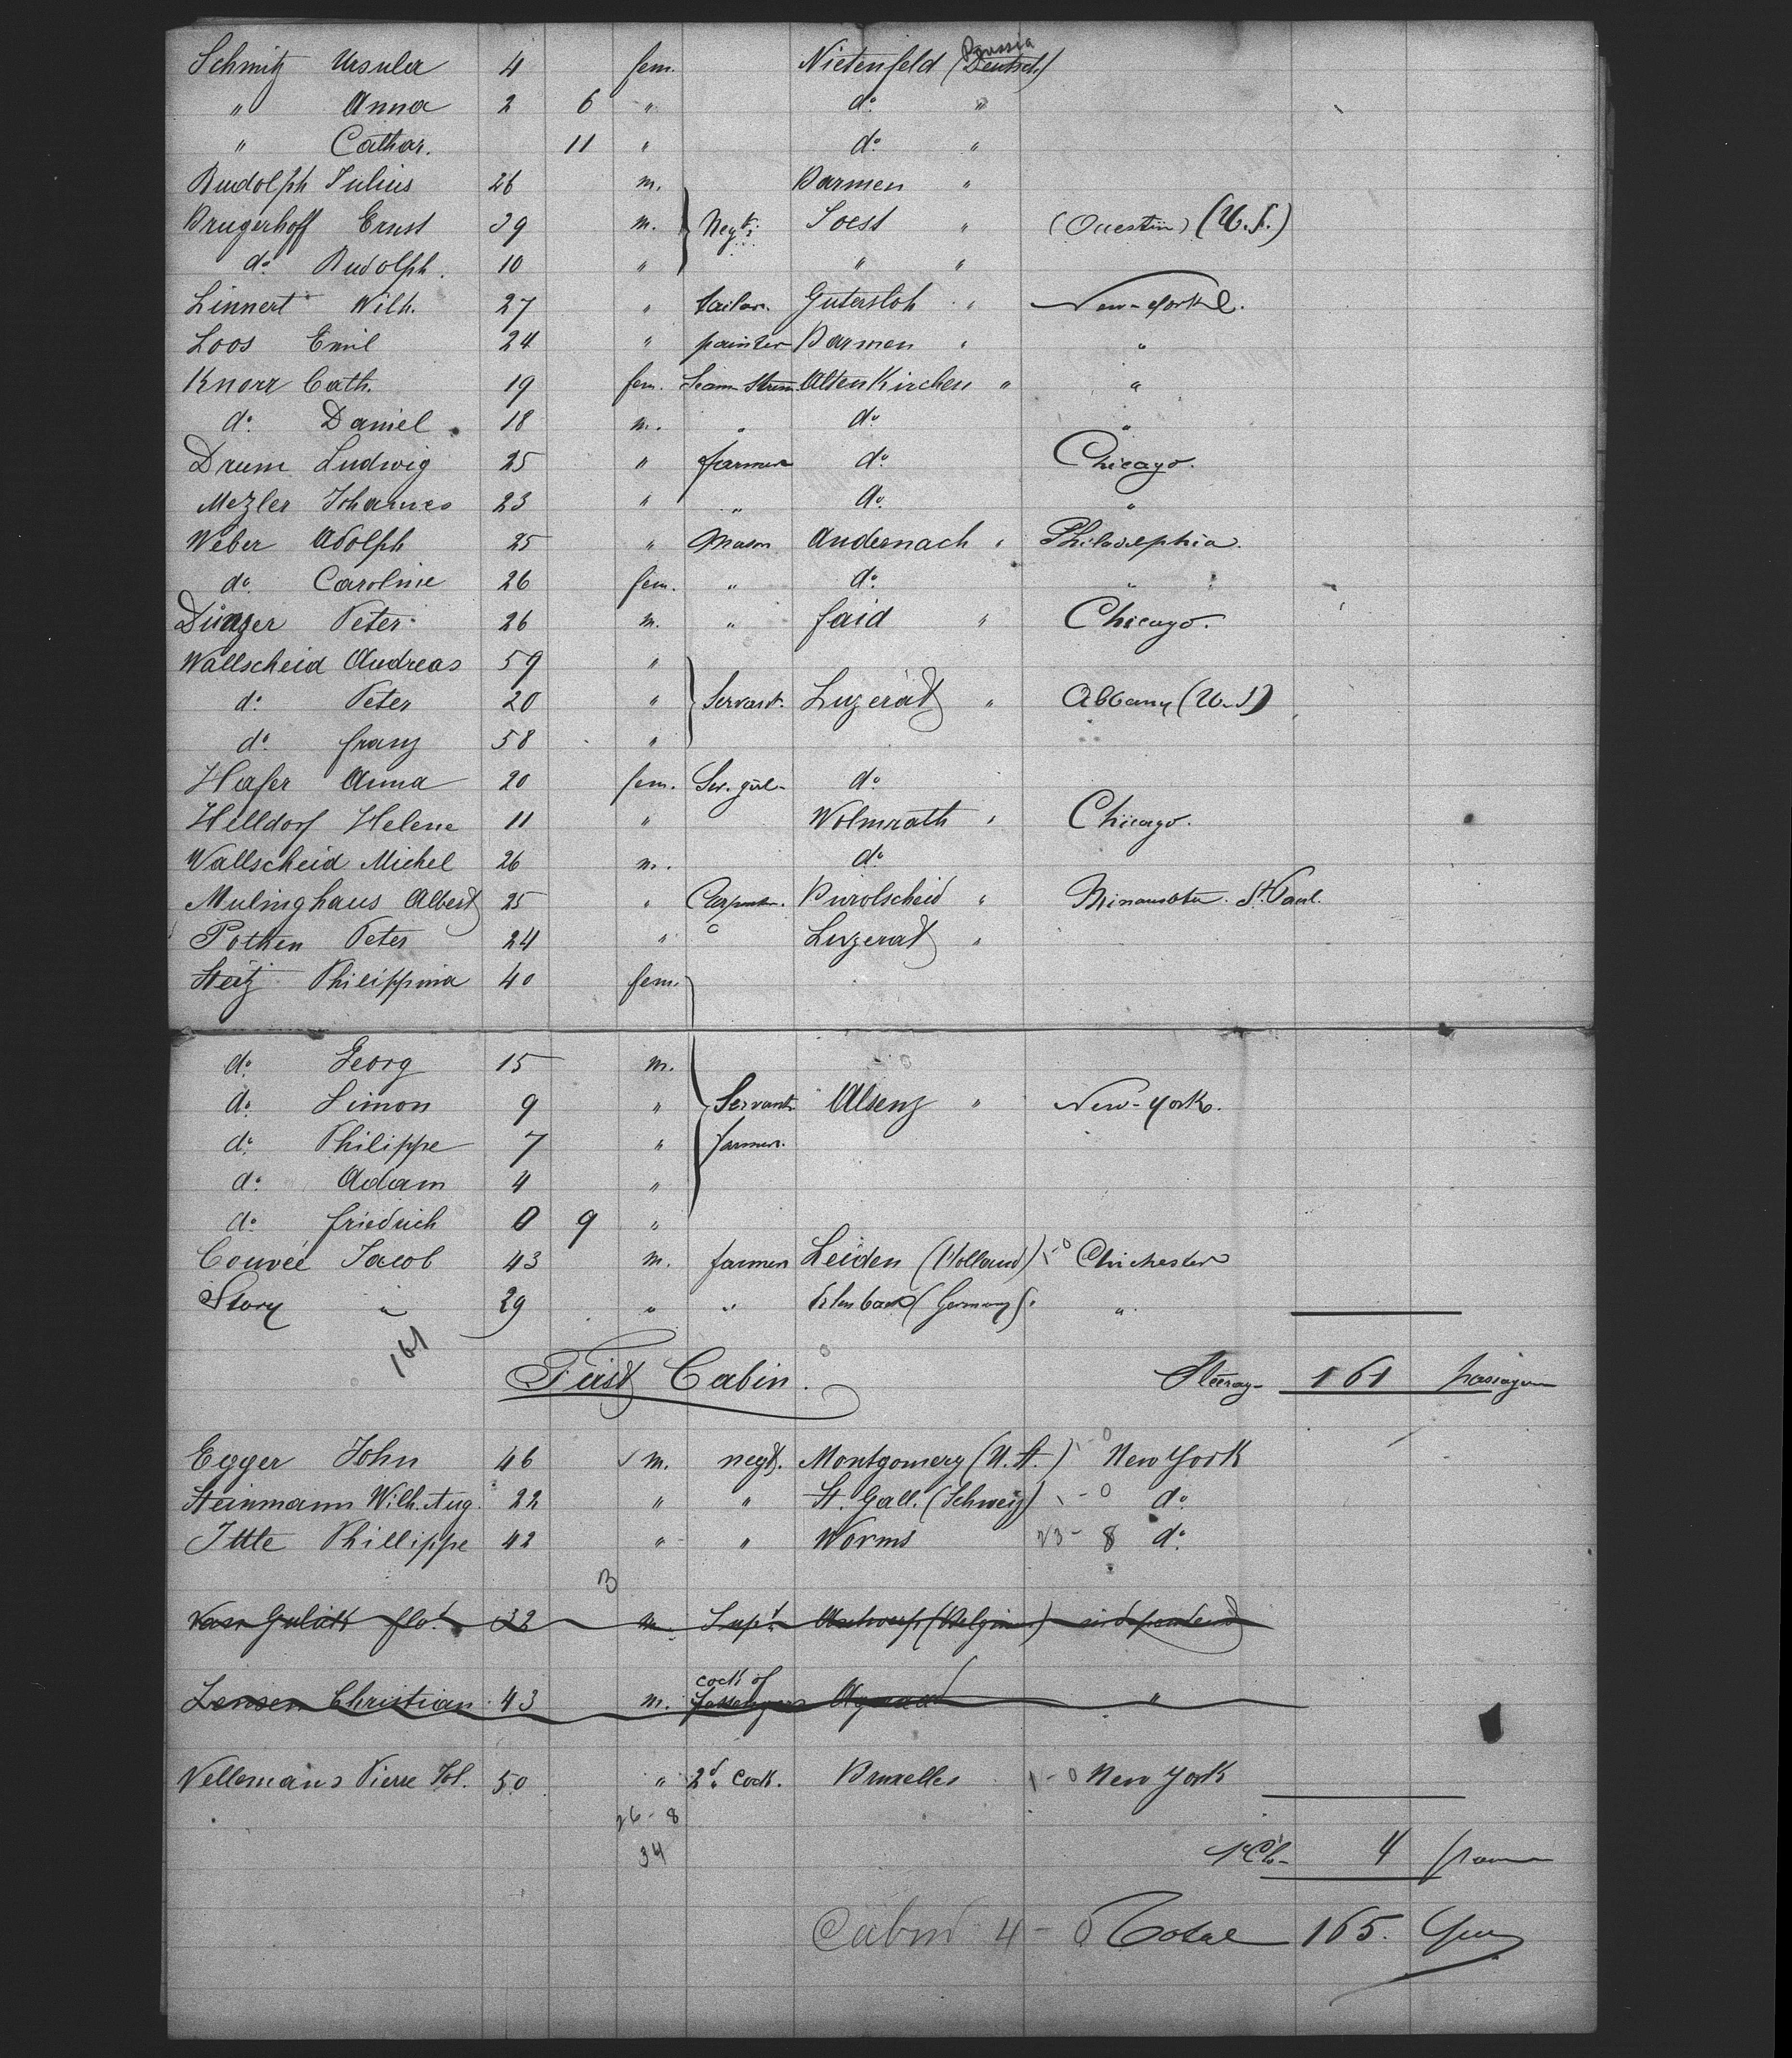 Schmitz Ursula 4 fem. Nietenfeld (Deutsch.) Prussia
" Anna 2 6 " do "
" Cathar. 11 " do "
Rudolph Julius 26 m. Barmen "
Brugerhoff Ernst 39 m. Negts. Soest " (U.S.)
do Rudolph. 10 " " "
Linnert Wilh. 27 " tailor. Gutersloh " New-York
Loos Emil 24 " painter Barmen " "
Knorr Cath. 19 fem. Altenkirchen " "
do Daniel 18 m. " do "
Drum Ludwig 25 " farmer do Chicago.
Mezler Johannes 23 " " do "
Weber Adolph 25 " Mason Andernach " Philadelphia.
do Caroline 26 fem. " do "
Dünzer Peter 26 m. " faid " Chicago.
Wallscheid Andreas 59 "
do Peter 20 " Servant. Luzerath " Albany (U.S)
do franz 58 "
Hafer Anna 20 fem. Ser. girl do
Helldorf Helene 11 " Wolmrath " Chicago.
Wallscheid Michel 26 m. do
Mulinghaus Albert 25 " Carpenter. " St Paul.
Pothen Peter 24 " " Luzerath "
Steitz Philippina 40 fem.
do Georg 15 m.
do Simon 9 " Servants Alsenz " New-York.
do Philippe 7 " farmer.
do Adam 4 "
do friedrich 0 9 "
Couvée Jacob 43 m. farmer Leiden (Holland) 1-0 Chichester
Story " 29 " " (Germany) "
161
First Cabin. Steerag- 161 passagers
Egger John 46 m. negt. Montgomery (U.S.) 1-0 New York
Steinmann Wilh. Aug. 22 " " St. Gall. (Schweiz) 1-0 do
Ittle Phillippe 42 " " Worms 23-8 do
3
32 m. Supt. Antwerp (Belgium)
Lensen Christian 43 m. cock of passengers "
Vellemans Pierre Jos. 50 " 2d. Cock. Bruxelles 1-0 New York
26-8
34
1st Cb- 4
Cabin 4-0 Total 165.